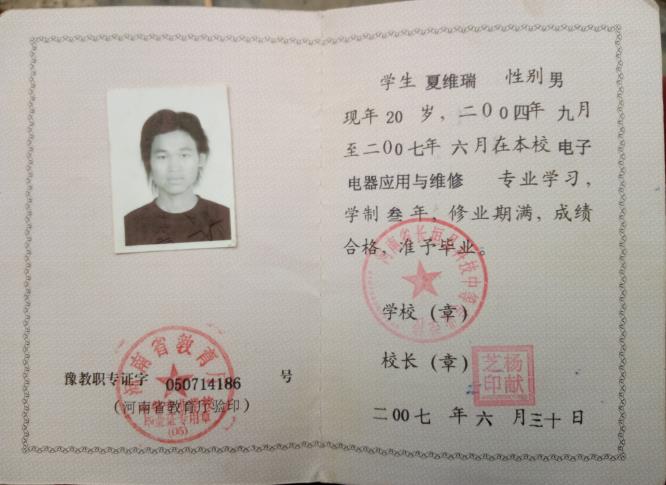 豫教职专证字 050714186 号
(河南省教育厅验印)
河南省教育厅
(05)
学生 夏维瑞 性别 男
现年 20 岁，二00四年 九月
至二00七年 六月在本校 电子
电器应用与维修 专业学习，
学制 叁年，修业期满，成绩
合格，准予毕业。
学校（章）
校长（章）
杨献芝印
二00七 年 六 月 三十 日